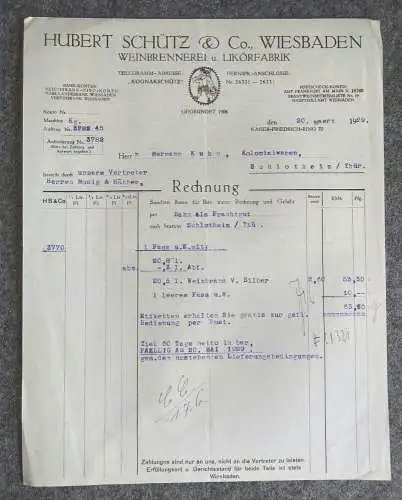 HUBERT SCHÜTZ & Co., WIESBADEN
WEINBRENNEREI u. LIKÖRFABRIK
TELEGRAMM-ADRESSE:
"KOGNAKSCHÜTZ"
FERNSPR.-ANSCHLÜSSE:
BANK-KONTEN:
POSTSCHECK-KONTO:
GEGRÜNDET 1908
Konto Nr.
Maschine
Auftrag Nr. 45
Anforderung Nr. 3782
den 20. 1929.
KAISER-FRIEDRICH-RING 70
Herr Hermann Kuhn, Kolonialwaren,
Schlotheim/Thür.
bestellt durch unsere Vertreter
Herren
Rechnung
Sandten Ihnen für Ihre werte Rechnung und Gefahr
per Bahn als Frachtgut
nach Station Schlotheim/Thür.
HS&Co RM. Pfg.
3770 1 Fass u.W. mit:
20,8 l
abs. -,2 l Abt.
20,6 l Weinbrand V. Silber 2,60 53,50
1 leeres Fass u.W. 10,--
63,50
Etiketten erhalten Sie gratis zur gefl.
Bedienung per Post.
Ziel 60 Tage netto in bar,
FAELLIG AM 20. MAI 1929,
gem. den umstehenden Lieferungsbedingungen.
17.6.
Zahlungen sind nur an uns, nicht an die Vertreter zu leisten.
Erfüllungsort u. Gerichtsstand für beide Teile ist stets
Wiesbaden.